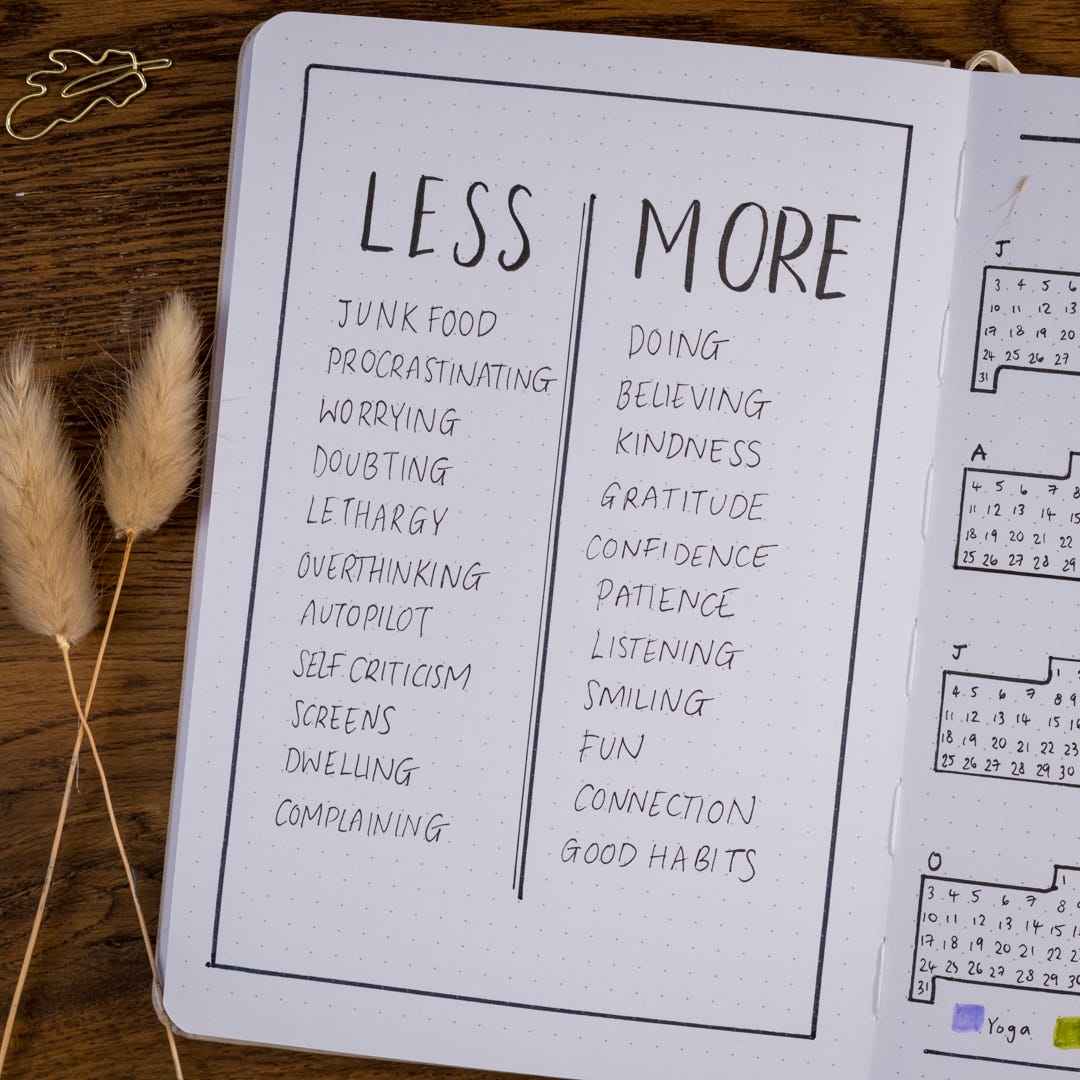 LESS
JUNK FOOD
PROCRASTINATING
WORRYING
DOUBTING
LETHARGY
OVERTHINKING
AUTOPILOT
SELF CRITICISM
SCREENS
DWELLING
COMPLAINING
MORE
DOING
BELIEVING
KINDNESS
GRATITUDE
CONFIDENCE
PATIENCE
LISTENING
SMILING
FUN
CONNECTION
GOOD HABITS
J
3 4 5 6
10 11 12 13
17 18 19 20
24 25 26 27
31
A
4 5 6 7 8
11 12 13 14 15
18 19 20 21 22
25 26 27 28 29
J
1
4 5 6 7 8 9
11 12 13 14 15 16
18 19 20 21 22 23
25 26 27 28 29 30
O
1
3 4 5 6 7 8
10 11 12 13 14 15
17 18 19 20 21 22
24 25 26 27 28 29
31
Yoga